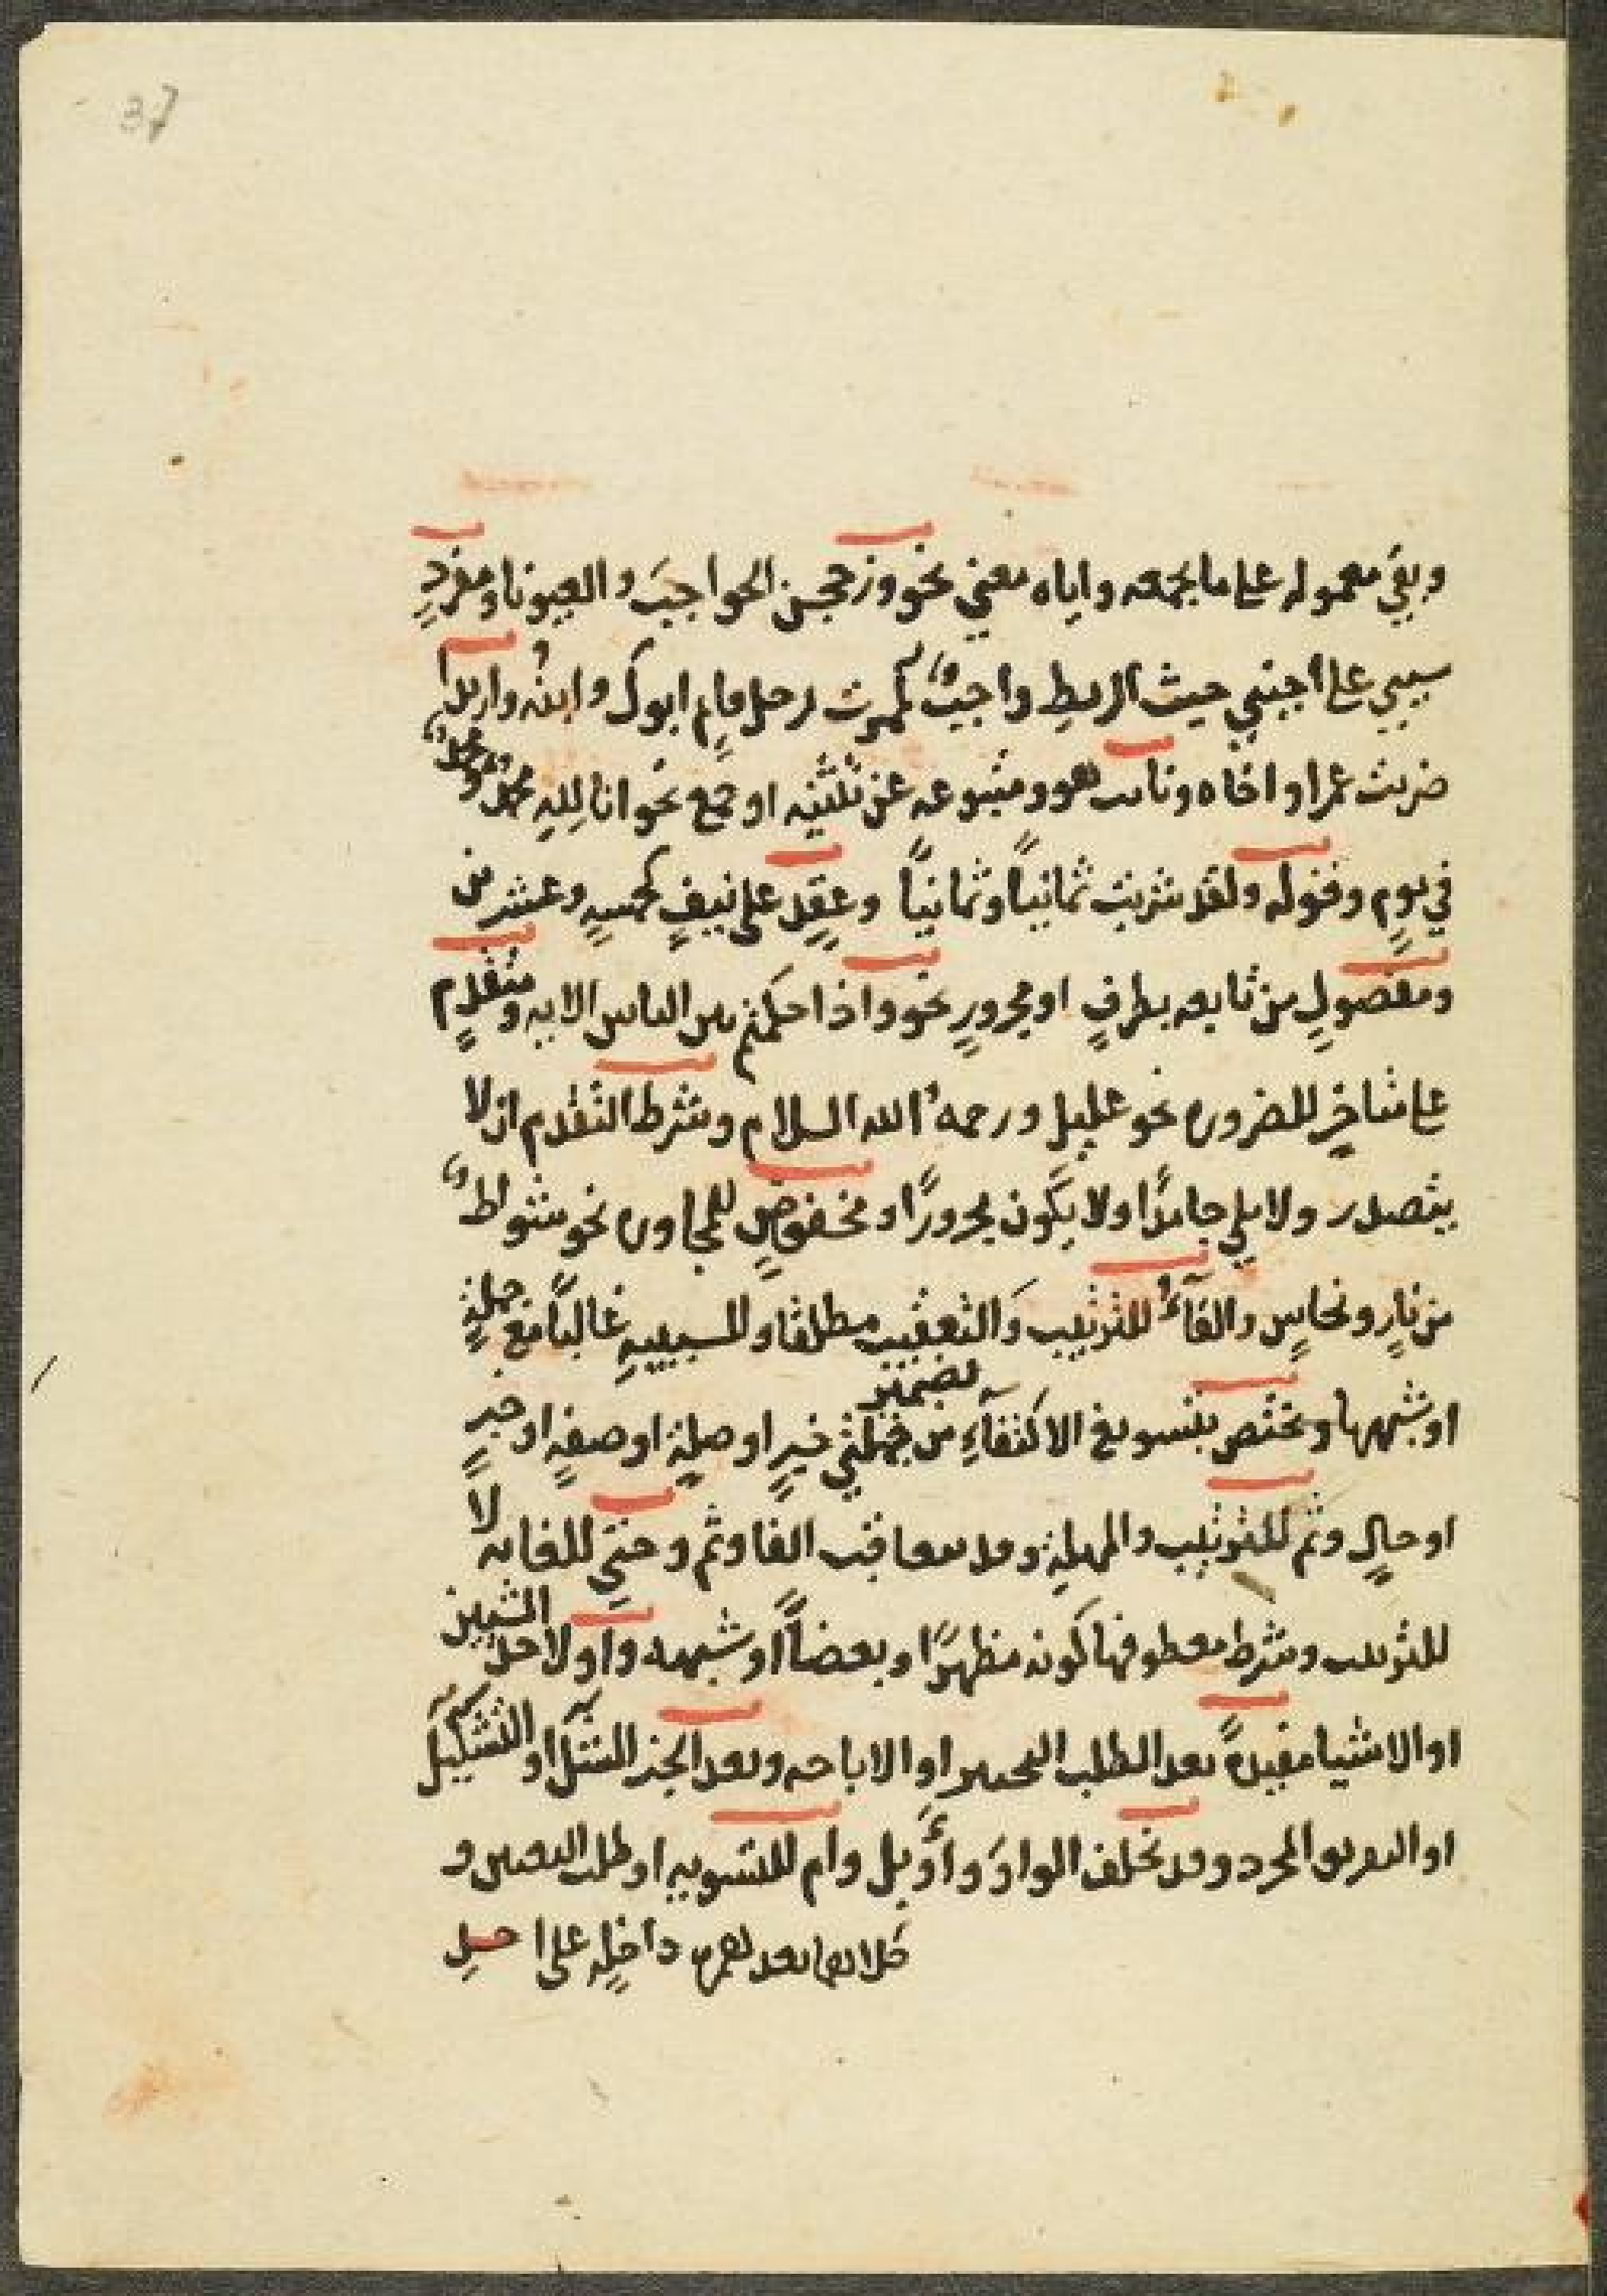 37
وبقي معموله على ما يجمعه واياه معنى نحو وزججن الحواجبَ والعيونا ومفردٍ
سببي على اجنبي حيث الربط واجبٌ كمررت برجل قايمٍ ابوك وابنُه وازيدا
ضربت عمرا واخاه ونايب هو ومتبوعه عن تثنيه او جمع نحو انا لله محمدٌ ومحمدٌ
في يومٍ وقوله ولقد شربت ثمانياً وثمانياً وعقدٍ على نيفٍ كخمسهٍ وعشرين
ومفصولٍ من تابعه بظرفٍ او مجرورٍ نحو واذا حكمتم بين الناس الايه ومتقدمٍ
على متاخرٍ للضروره نحو عليك ورحمهُ الله السلام وشرط التقدم ان لا
يتصدر ولا يلي جامدًا ولا يكون مجرورًا ومخفوضٍ للمجاوره نحو شواظٌ
من نارٍ ونحاسٍ والفآءُ للترتيب وَالتعقيب مطلقا وللسببيهِ غالباً مع جملةٍ
او شبهها وتختص بتسويغ الاكتفآءِ من جملتي خبرٍ او صلةٍ او صفةٍ او خبرٍ
بضمير
او حالٍ وثم للترتيب والمهلة وقد يتعاقب الفا وثم وحتى للغايه لا
للترتيب وشرط معطوفها كونه مظهرًا وبعضاً او شبهه واو لاحد الشيين
او الاشيا مفيدةً بعد الطلب التخيير او الاباحه وبعد الخبر الشك او التشكيك
او التفريق المجرد وقد تخلف الواوَ وأو بل وام للتسويه او طلب التعيين و
كلاهما بعد همزه داخلةٍ على احد